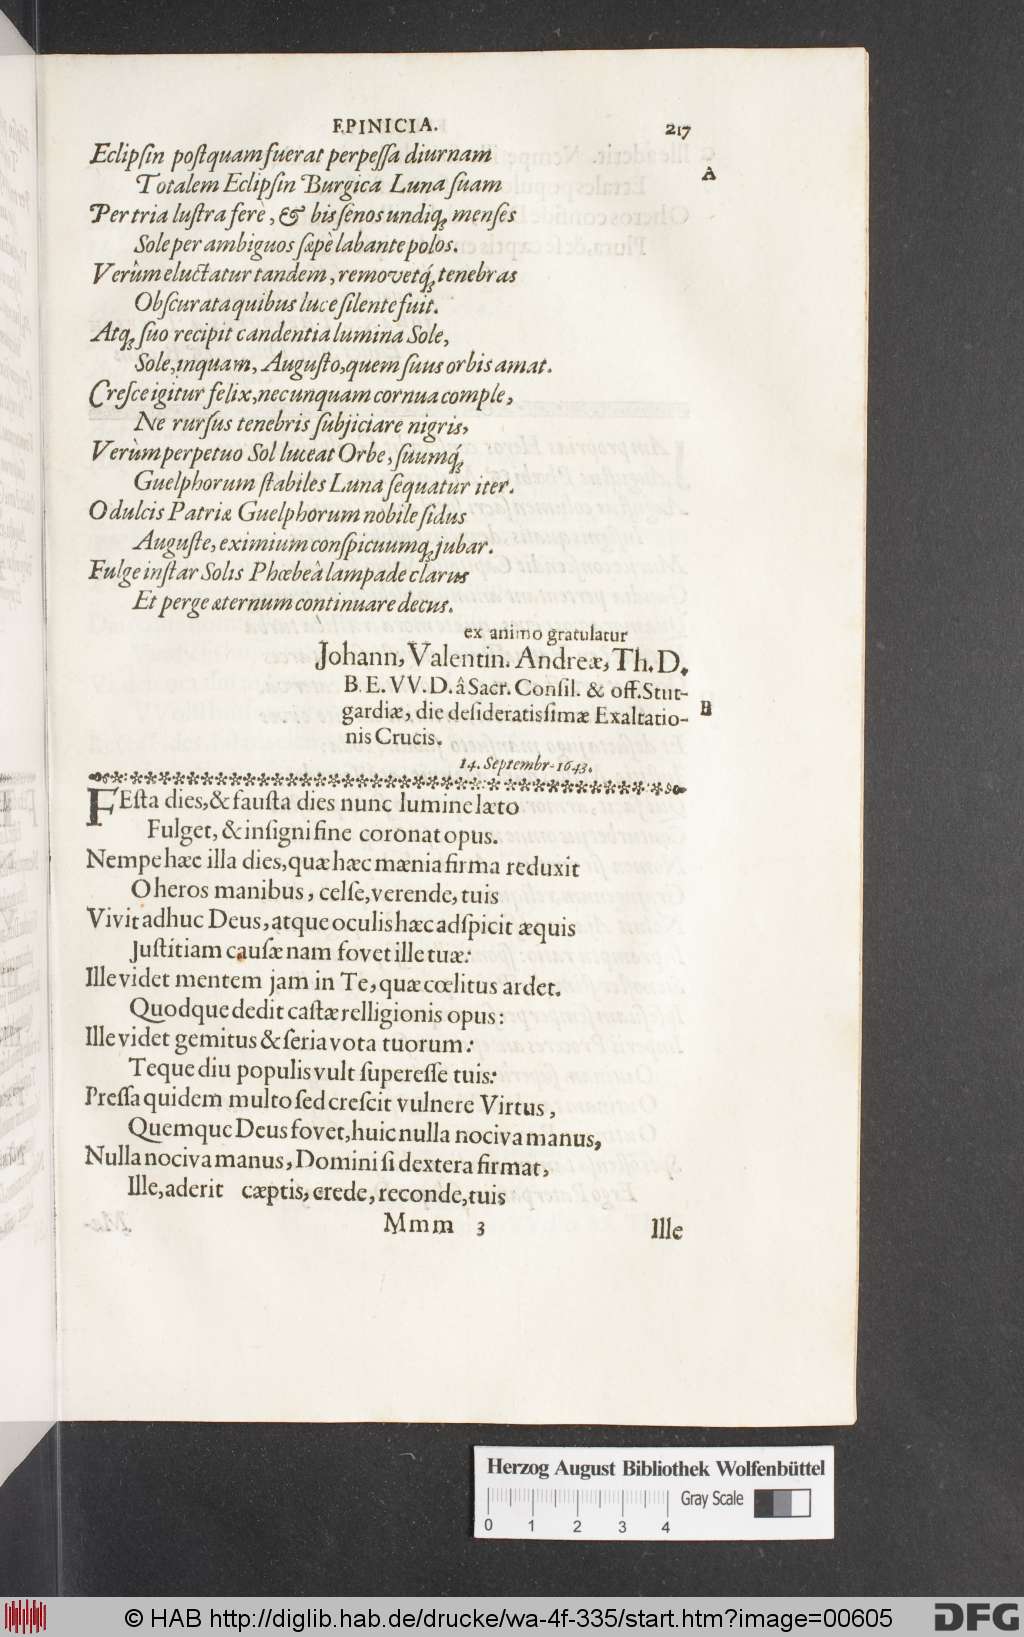 EPINICIA. 217
Eclipſin poſtquam fuerat perpeſſa diurnam
A
Totalem Eclipſin Burgica Luna ſuam
Per tria luſtra ferè, & bis ſenos undiq; menſes
Sole per ambiguos ſæpè labante polos.
Verùm eluctatur tandem, removetq́; tenebras
Obſcurata quibus luce ſilente fuit.
Atq; ſuo recipit candentia lumina Sole,
Sole, inquam, Auguſto, quem ſuus orbis amat.
Creſce igitur felix, nec unquam cornua comple,
Ne rurſus tenebris ſubjiciare nigris,
Verùm perpetuo Sol luceat Orbe, ſuumq́;
Guelphorum ſtabiles Luna ſequatur iter.
O dulcis Patriæ Guelphorum nobile ſidus
Auguſte, eximium conſpicuumq; jubar.
Fulge inſtar Solis Phœbeà lampade clarus
Et perge æternum continuare decus.
ex animo gratulatur
Johann, Valentin. Andreæ, Th. D.
B. E. VV. D. â Sacr. Conſil. & off. Stut-
gardiæ, die deſideratiſſimæ Exaltatio-
B
nis Crucis.
14. Septembr. 1643.
FEſta dies, & fauſta dies nunc lumine læto
Fulget, & inſigni fine coronat opus.
Nempe hæc illa dies, quæ hæc mænia firma reduxit
O heros manibus, celſe, verende, tuis
Vivit adhuc Deus, atque oculis hæc adſpicit æquis
Juſtitiam cauſæ nam fovet ille tuæ:
Ille videt mentem jam in Te, quæ cœlitus ardet.
Quodque dedit caſtæ relligionis opus:
Ille videt gemitus & ſeria vota tuorum:
Teque diu populis vult ſupereſſe tuis:
Preſſa quidem multo ſed creſcit vulnere Virtus,
Quemque Deus fovet, huic nulla nociva manus,
Nulla nociva manus, Domini ſi dextera firmat,
Ille, aderit cæptis, crede, reconde, tuis
Mmm 3 Ille
Herzog August Bibliothek Wolfenbüttel
Gray Scale
0 1 2 3 4
© HAB http://diglib.hab.de/drucke/wa-4f-335/start.htm?image=00605
DFG